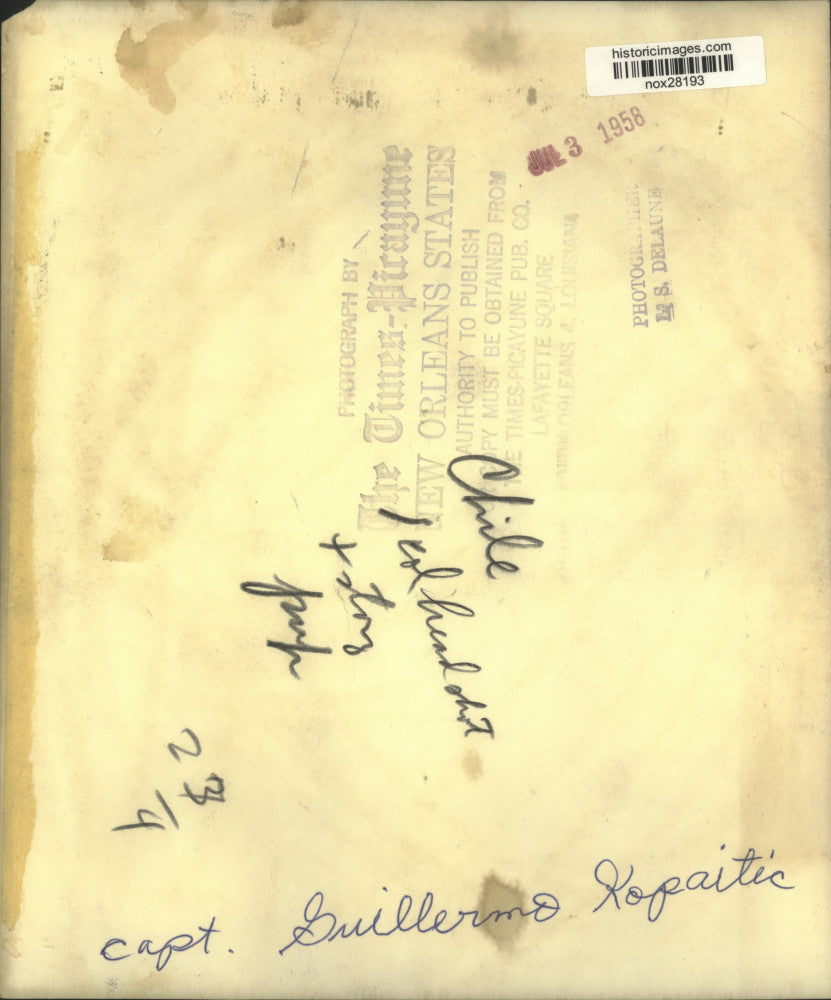 historicimages.com
nox28193
JUL 3 1958
PHOTOGRAPHER
L. S. DELAUNE
PHOTOGRAPH BY
The Times-Picayune
NEW ORLEANS STATES
AUTHORITY TO PUBLISH
COPY MUST BE OBTAINED FROM
THE TIMES-PICAYUNE PUB. CO.
LAFAYETTE SQUARE
NEW ORLEANS 4, LOUISIANA
Chile
1 col head shot
+ story
pmp
23
1/4
capt. Guillermo Kopaitic